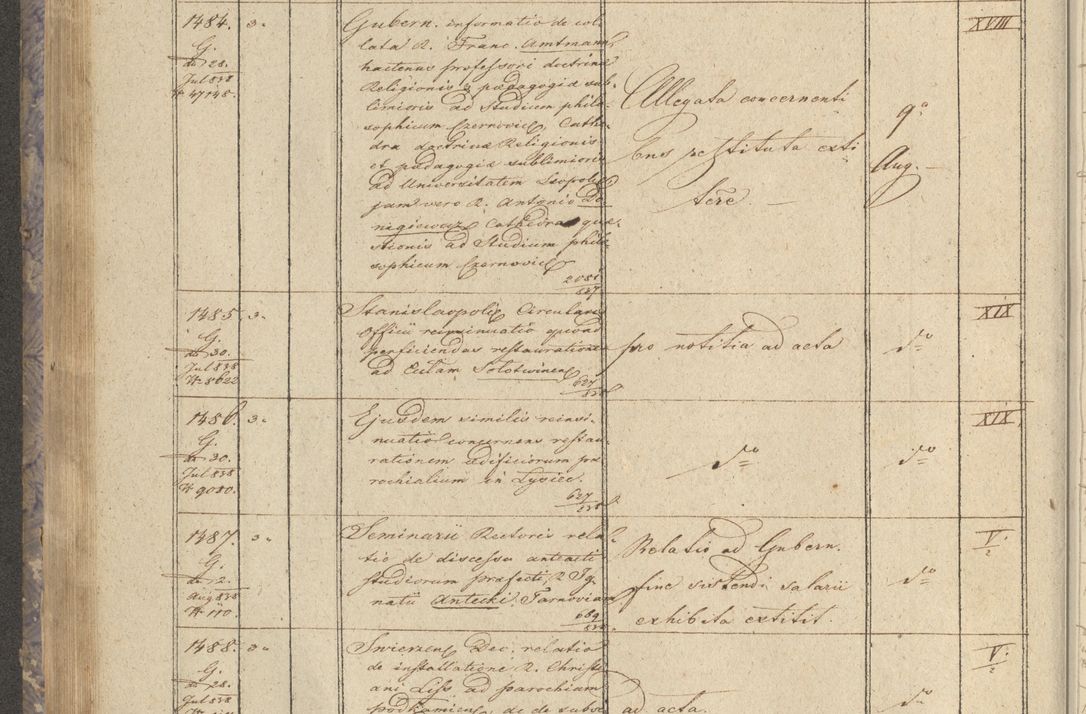 1484. 3.
G.
de 28.
Jul 838
N 47148.
Gubern. informatio de col-
lata R. Franc. Amtmann,
hactenus professori doctrinæ
Religionis & pædagogiæ sub-
limioris ad Studium philo-
sophicum Czernovic, Cathe-
dra doctrinæ Religionis
et pædagogiæ sublimioris
ad Universitatem Leopol
jam vero R. Antonio
Cathedra quæ-
stionis ad Studium philo-
sophicum Czernovic
Allegata concernenti
bus restituta exti
tere.
9a
Aug.
XVIII
1485. 3.
G.
de 30.
Jul 838
N 8622
Stanislaopolis Circularis
Officii reinsinuatio quoad
perficiendas restaurationes
ad Eccl̃am Solotwinens
627/838
pro notitia ad acta
do
XIX
1486. 3.
G.
de 30.
Jul 838
N 9080.
Ejusdem similis reinsi-
nuatio concernens restau-
rationem ædificiorum pa-
rochialium in Lysiec.
627/838
do
do
XIX
1487. 3.
G.
de 2.
Aug 838
N 110.
Seminarii Rectoris rela-
tio de discessu anteacti
studiorum præfecti R Ig-
natii Antecki Tarnoviam
689/838
Relatio ad Gubern.
fine sistendi salarii
exhibita extitit.
do
V/2
1488. 3.
G.
de 28.
Jul 838
Swierzens Dec. relatio
de installatione R. Christi-
ani Liss ad parochiam
Podkamien, de
ad acta.
do
V/2